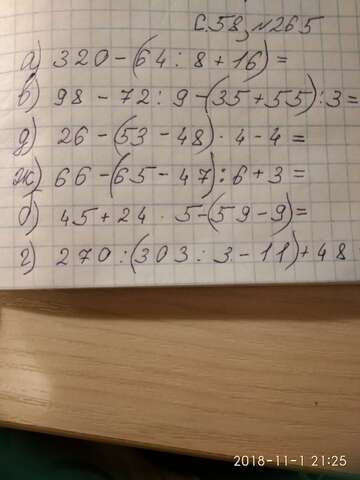 с.58, №265
а) 320-(64:8+16)=
в) 98-72:9-(35+55):3=
д) 26-(53-48)·4-4=
ж) 66-(65-47):6+3=
б) 45+24·5-(59-9)=
г) 270:(303:3-11)+48
2018-11-1 21:25